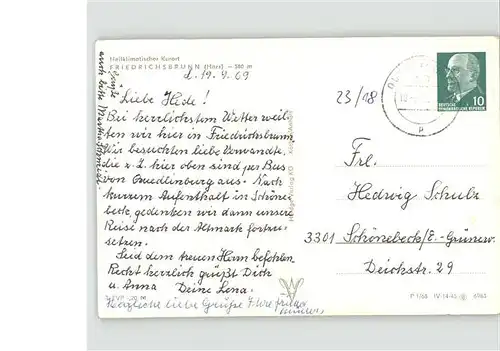 Heilklimatischer Kurort
FRIEDRICHSBRUNN (Harz) – 580 m
d. 19. 9. 69
Liebe Hede!
Bei herrlichstem Wetter weil-
ten wir hier in Friedrichsbrunn
Wir besuchten liebe Verwandte,
die z. Z. hier oben sind per Bus
von Quedlinburg aus. Nach
kurzem Aufenthalt in Schöne-
beck, gedenken wir dann unsere
Reise nach der Altmark fortzu-
setzen.
Seid dem treuen Herrn befohlen
Recht herzlich grüßt Dich
u. Anna Deine Lena.
Herzliche liebe Grüße
23/18
DEUTSCHE
DEMOKRATISCHE REPUBLIK
10
Frl.
Hedwig Schulz
3301 Schönebeck/E.-Grünew.
Deichstr. 29
P 1/68 IV-14-45 6965